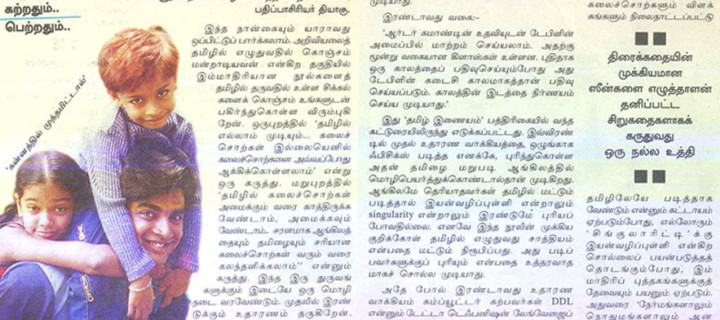 கற்றதும்..
பெற்றதும்..
'கன்னத்தில் முத்தமிட்டால்'
பதிப்பாசிரியர் தியாகு.
இந்த நான்கையும் யாராவது
ஒப்பிட்டுப் பார்க்கலாம். அறிவியலைத்
தமிழில் எழுதுவதில் கொஞ்சம்
மன்றாடியவன் என்கிற தகுதியில்
இம்மாதிரியான நூல்களைத்
தமிழில் தருவதில் உள்ள சிக்கல்
களைக் கொஞ்சம் உங்களுடன்
பகிர்ந்துகொள்ள விரும்புகி
றேன். ஒருபுறத்தில் 'தமிழில்
எல்லாம் முடியும்.. கலைச்
சொற்கள் இல்லையெனில்
கலைச்சொற்களை அவ்வப்போது
ஆக்கிக்கொள்ளலாம்' என்று
ஒரு கருத்து. மறுபுறத்தில்
'தமிழில் கலைச்சொற்கள்
அமைக்கும் வரை காத்திருக்க
வேண்டாம், அமைக்கவும்
வேண்டாம். சரளமாக ஆங்கிலத்
தையும் தமிழையும் சரியான
கலைச்சொற்கள் வரும் வரை
கலந்தளிக்கலாம்' என்னும்
கருத்து. இந்த இரு துருவங்
களுக்கும் இடையே ஒரு மொழி
நடை வரவேண்டும். முதலில் இரண்
டுக்கும் உதாரணம் தருகிறேன்.
முடியாது.
இரண்டாவது வகை:-
'ஆர்டர் கமாண்டின் உதவியுடன் டேபிளின்
அமைப்பில் மாற்றம் செய்யலாம். அதற்கு
மூன்று வகையான கிளாஸ்கள் உள்ளன. புதிதாக
ஒரு காலத்தைப் பதிவுசெய்யும்போது அது
டேபிளின் கடைசி காலமாகத்தான் பதிவு
செய்யப்படும். காலத்தின் இடத்தை நிர்ணயம்
செய்ய முடியாது.'
இது 'தமிழ் இணையம்' பத்திரிகையில் வந்த
கட்டுரையிலிருந்து எடுக்கப்பட்டது. இவ்விரண்
டில் முதல் உதாரண வாக்கியத்தை, ஒழுங்காக
ஃபிசிக்ஸ் படித்த எனக்கே, புரிந்துகொள்ள
அதன் தமிழை மறுபடி ஆங்கிலத்தில்
மொழிபெயர்த்துக்கொண்டால்தான் முடிகிறது.
ஆங்கிலமே தெரியாதவர்கள் தமிழில் மட்டும்
படித்தால் இயன்வழிப்புள்ளி என்றாலும்
singularity என்றாலும் இரண்டுமே புரியப்
போவதில்லை. எனவே இந்த நூலின் முக்கிய
குறிக்கோள் தமிழில் எழுதுவது சாத்தியம்
என்பதை மட்டும் நிரூபிப்பது. அது படிப்
பவர்களுக்குப் புரியும் என்பதை உத்தரவாத
மாகச் சொல்ல முடியாது.
அதே போல் இரண்டாவது உதாரண
வாக்கியம் கம்ப்யூட்டர் கற்பவர்கள் DDL
என்னும் டேட்டா டெஃபனிஷன் லேங்வேஜைப்
கலைச்சொற்களும் விளக்
கங்களும் நிலைநாட்டப்பட்டு
திரைக்கதையின்
முக்கியமான
ஸீன்களை எழுத்தாளன்
தனிப்பட்ட
சிறுகதைகளாகக்
கருதுவது
ஒரு நல்ல உத்தி
தமிழிலேயே படித்தாக
வேண்டும் என்னும் கட்டாயம்
ஏற்படும்போது, எல்லோரும்
'சிங்குலாரிட்டி'க்கு
இயன்வழிப்புள்ளி என்கிற
சொல்லைப் பயன்படுத்தத்
தொடங்கும்போது, இம்
மாதிரிப் புத்தகங்களுக்குத்
தேவையும் பயனும் ஏற்படும்.
அதுவரை 'நேர்மங்களாலும்
நொதுமங்களாலும் ஆன